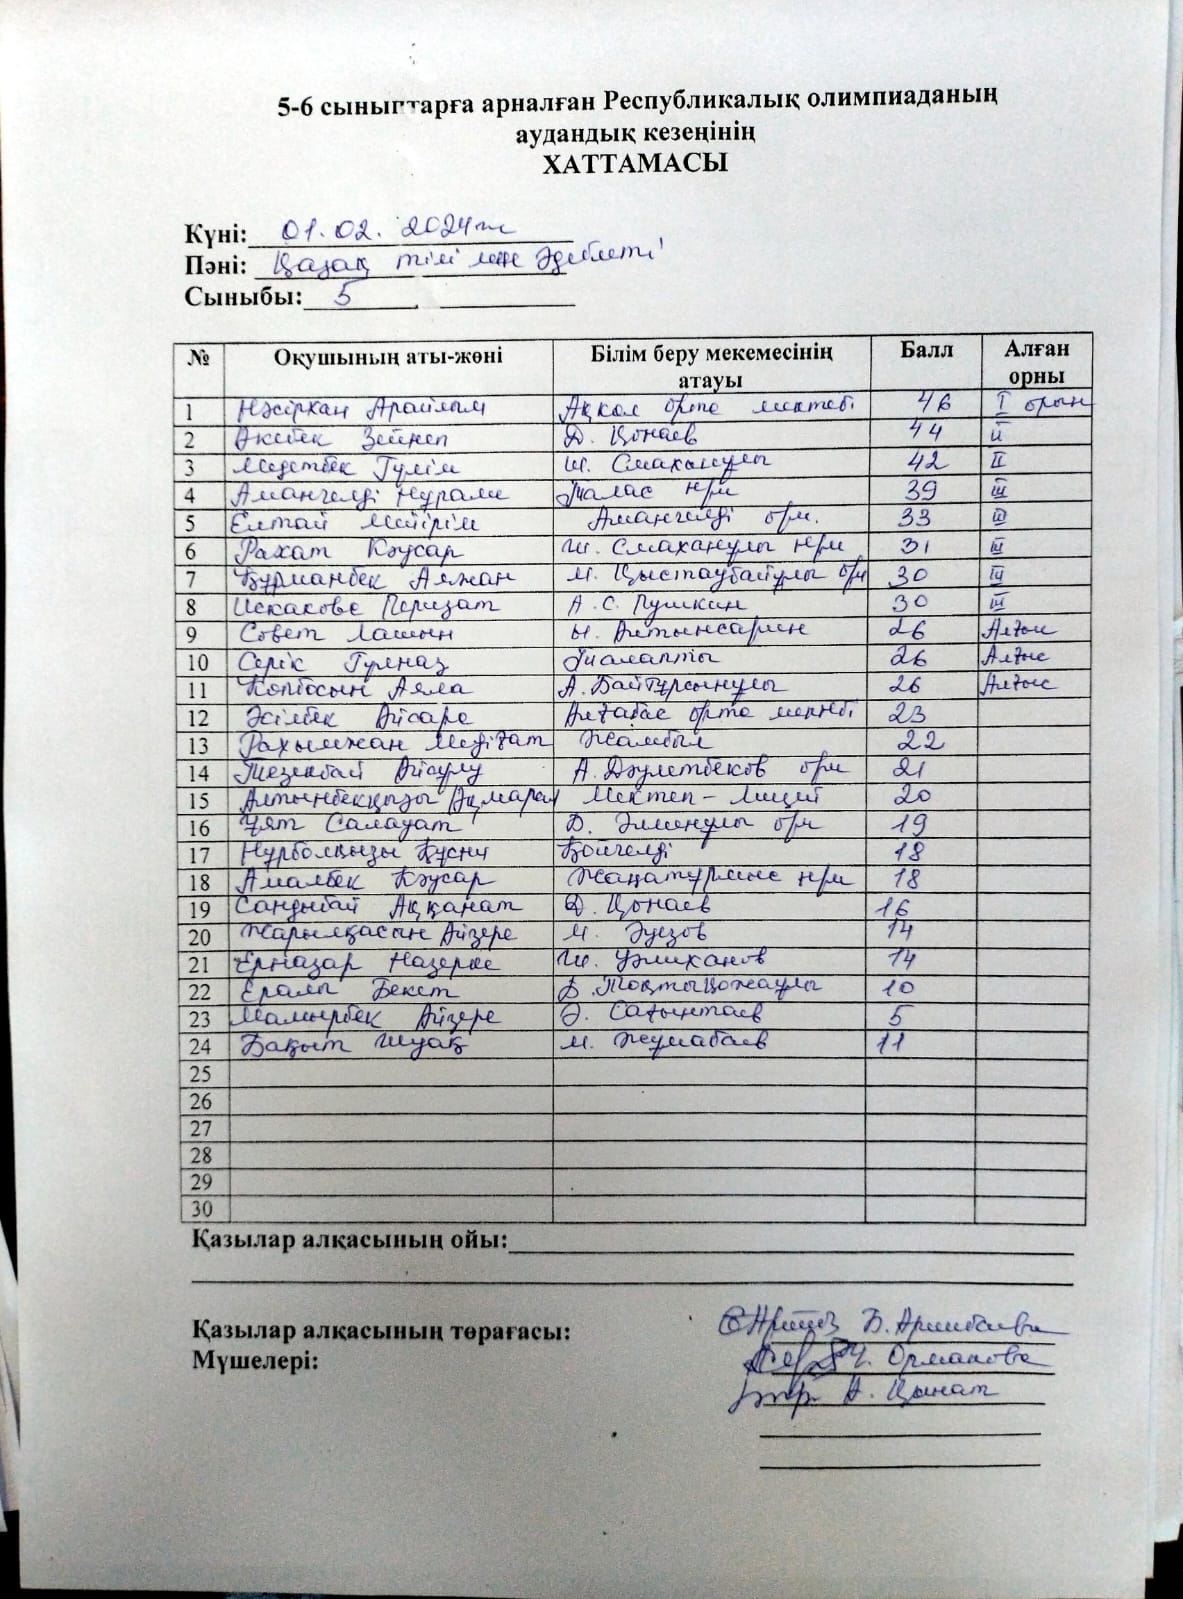 5-6 сыныптарға арналған Республикалық олимпиаданың
аудандық кезеңінің
ХАТТАМАСЫ
Күні: 01.02.2024ж
Пәні: Қазақ тілі және әдебиеті
Сыныбы: 5
№ Оқушының аты-жөні Білім беру мекемесінің атауы Балл Алған орны
1 Нәсірхан Арайлым Ақкөл орта мектебі 46 I орын
2 Әксебек Зейнеп Д. Қонаев 44 II
3 Медетбек Гүлім Ш. Смаханұлы 42 II
4 Амангелді Нұрали Талас нрм 39 III
5 Елтай Мейірім Амангелді орм. 33 III
6 Рахат Кәусар Ш. Смаханұлы нрм 31 III
7 Құрманбек Аяжан М. Қыстаубайұлы орм 30 III
8 Искакова Перизат А.С. Пушкин 30 III
9 Совет Лашын Ы. Алтынсарин 26 Алғыс
10 Серік Гүлназ Талапты 26 Алғыс
11 Көпбосын Аяла А. Байтұрсынұлы 26 Алғыс
12 Әсілбек Айсара Алғабас орта мектебі 23
13 Рахымжан Медіғат Жамбыл 22
14 Тезекбай Айсұлу А. Дәулетбеков орм 21
15 Алтынбекқызы Ақмарал Мектеп-лицей 20
16 Ұят Салауат Б. Әлменұлы орм 19
17 Нұрболқызы Құсни Көшелді 18
18 Амалбек Кәусар Жаңатұрмыс нрм 18
19 Сандыбай Аққанат Д. Қонаев 16
20 Жарылқасын Айзере М. Әуезов 14
21 Ерназар Назерке Ш. Уәлиханов 14
22 Ералы Бекет Б. Тоқтықожаұлы 10
23 Мамырбек Айзере Ә. Сағынтаев 5
24 Бақыт Шуақ М. Жұмабаев 11
25
26
27
28
29
30
Қазылар алқасының ойы:
Қазылар алқасының төрағасы: Б. Арынбаева
Мүшелері: Ч. Орманова
А. Қынат